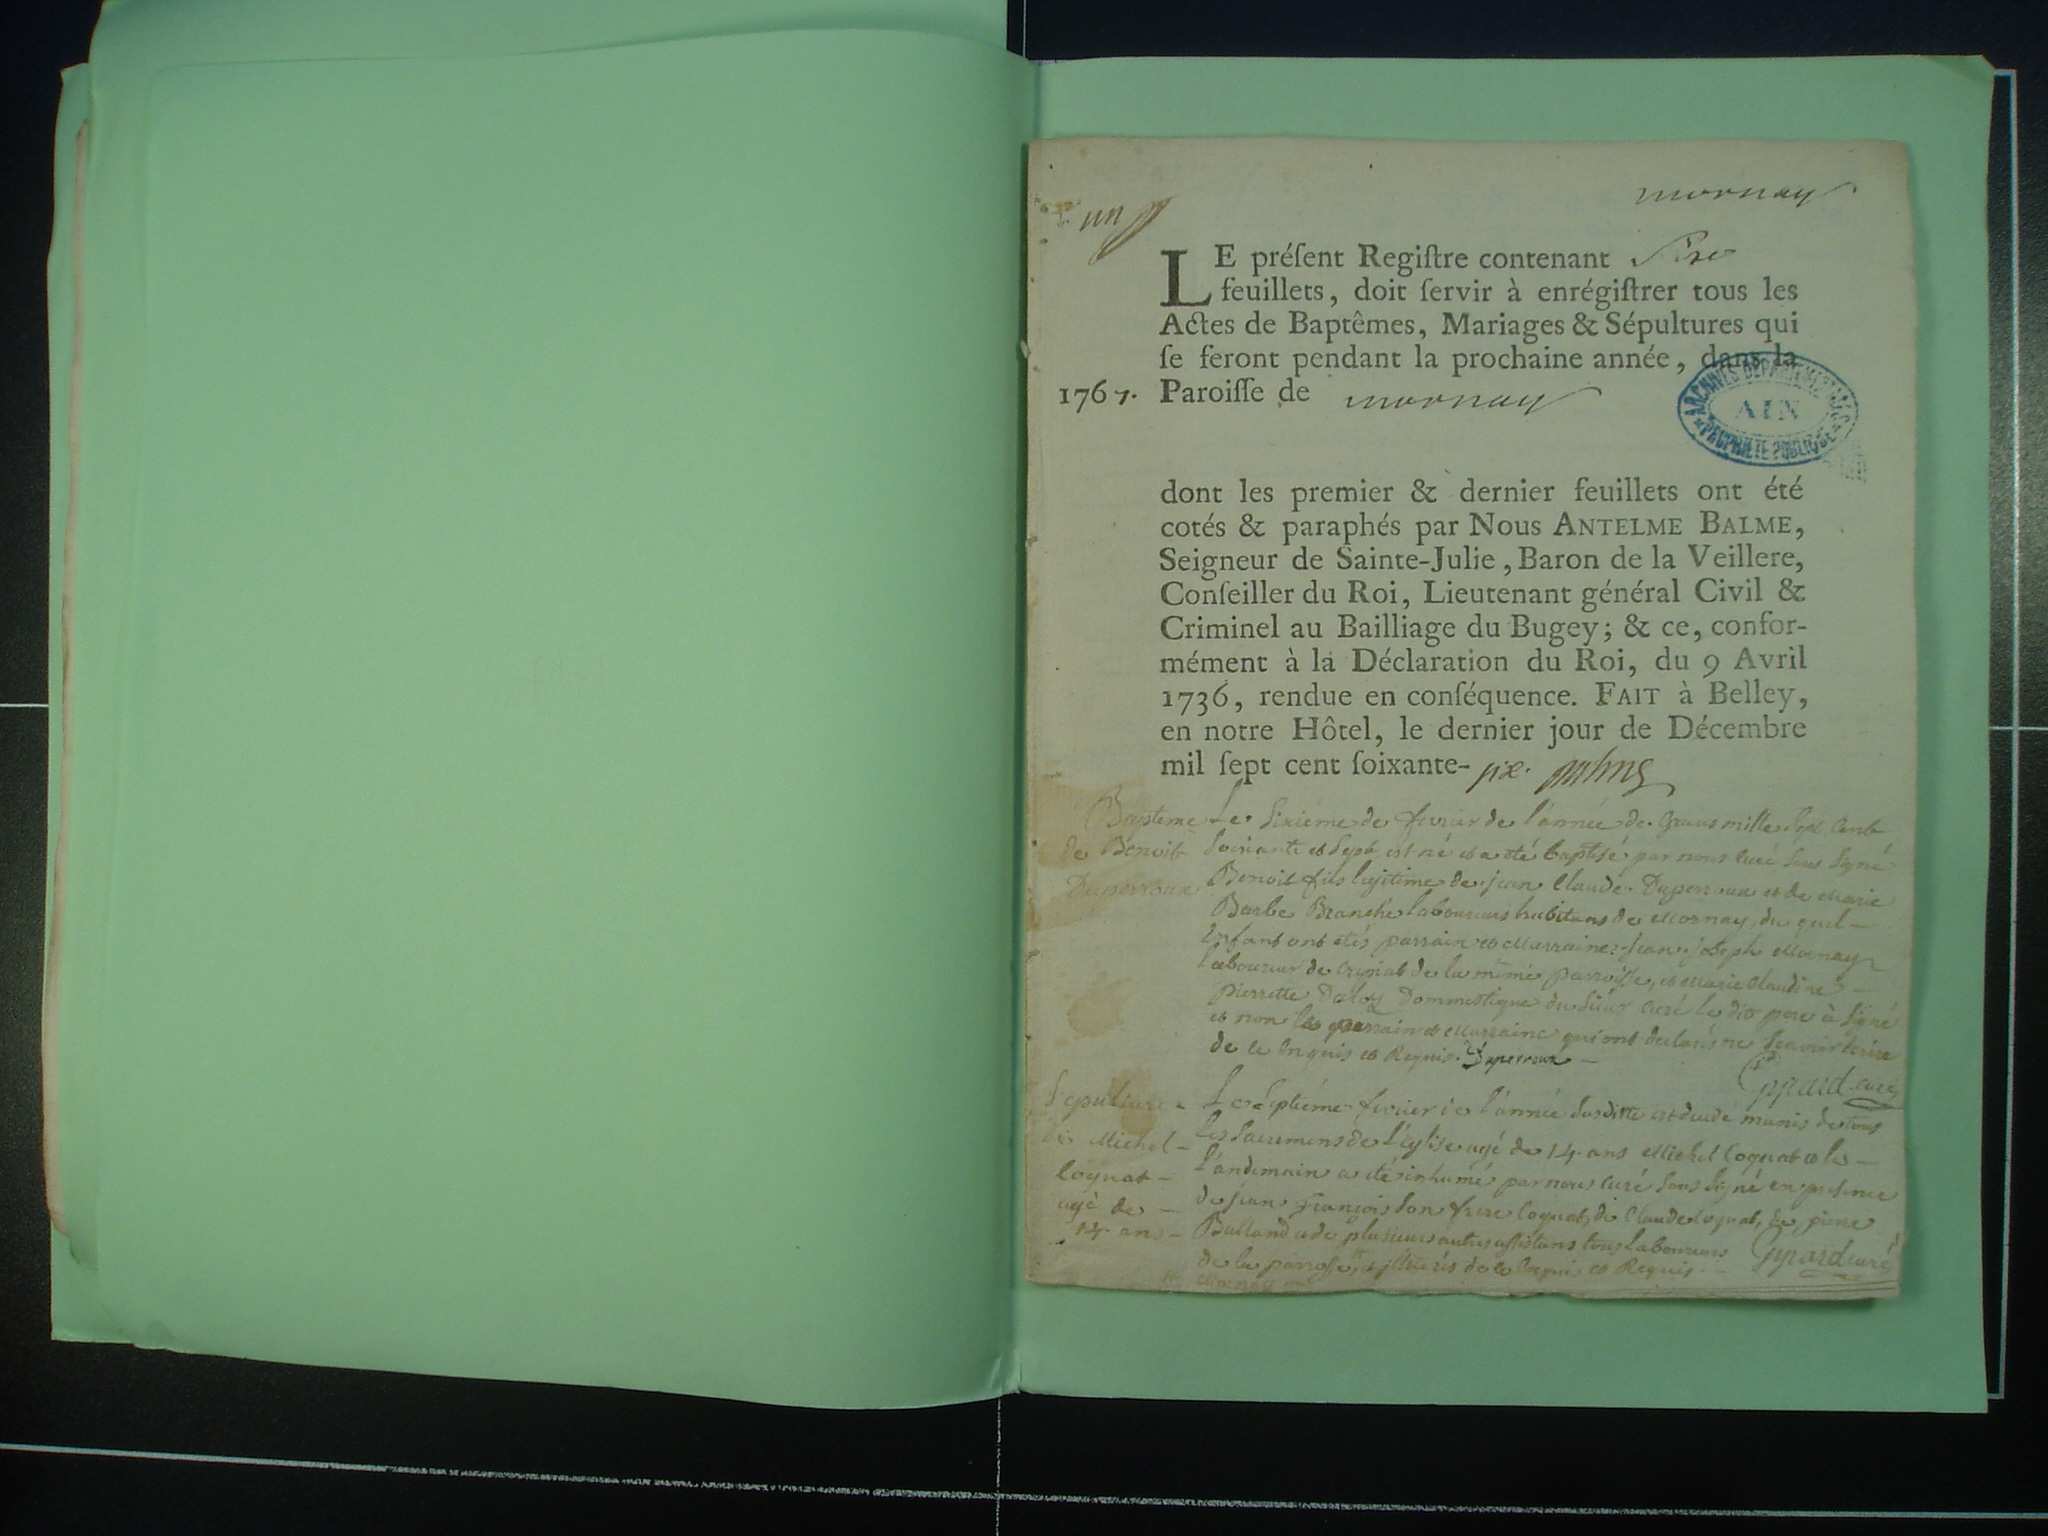 mornay
un
LE préſent Regiſtre contenant Six
feuillets, doit ſervir à enrégiſtrer tous les
Actes de Baptêmes, Mariages & Sépultures qui
ſe feront pendant la prochaine année, dans la
1767. Paroiſſe de mornay
ARCHIVES DEPARTEMENTALES
AIN
PROPRIETE PUBLIQUE
dont les premier & dernier feuillets ont été
cotés & paraphés par Nous ANTELME BALME,
Seigneur de Sainte-Julie, Baron de la Veillere,
Conſeiller du Roi, Lieutenant général Civil &
Criminel au Bailliage du Bugey; & ce, confor-
mément à la Déclaration du Roi, du 9 Avril
1736, rendue en conſéquence. FAIT à Belley,
en notre Hôtel, le dernier jour de Décembre
mil ſept cent ſoixante-six.
Bapteme Le Sixieme de fevrier de l'année de Grace mille Sept Cent
de Benoit Soixante et Sept est né et a été baptisé par nous curé Sous Signé
Duperroux Benoit fils legitime de jean Claude Duperroux et de Marie
Barbe Branche laboureurs habitans de Mornay, du quel
Enfant ont étés parrain et Marraine jean joseph Mornay
laboureur de de la même parroisse, et Marie Claudine
pierrette Dommestique du Sieur curé le dit pere à Signé
et non les parrain et Marraine qui ont declarés ne Scavoir ecrire
de ce Enquis et Requis. Duperroux
curé
Sepulture Le Septieme fevrier de l'année Susditte est decedé munis de tous
de Michel les Sacremens de l'Eglise agé de 14 ans Michel Coquat et le
Coquat landemain a été inhumé par nous curé Sous Signé en presence
agé de de jean François Son frere Coquat, de Claude Coquat, de pierre
14 ans Balland et de plusieurs autres assistans tous laboureurs
de la parroisse, de ce Enquis et Requis curé
Mornay